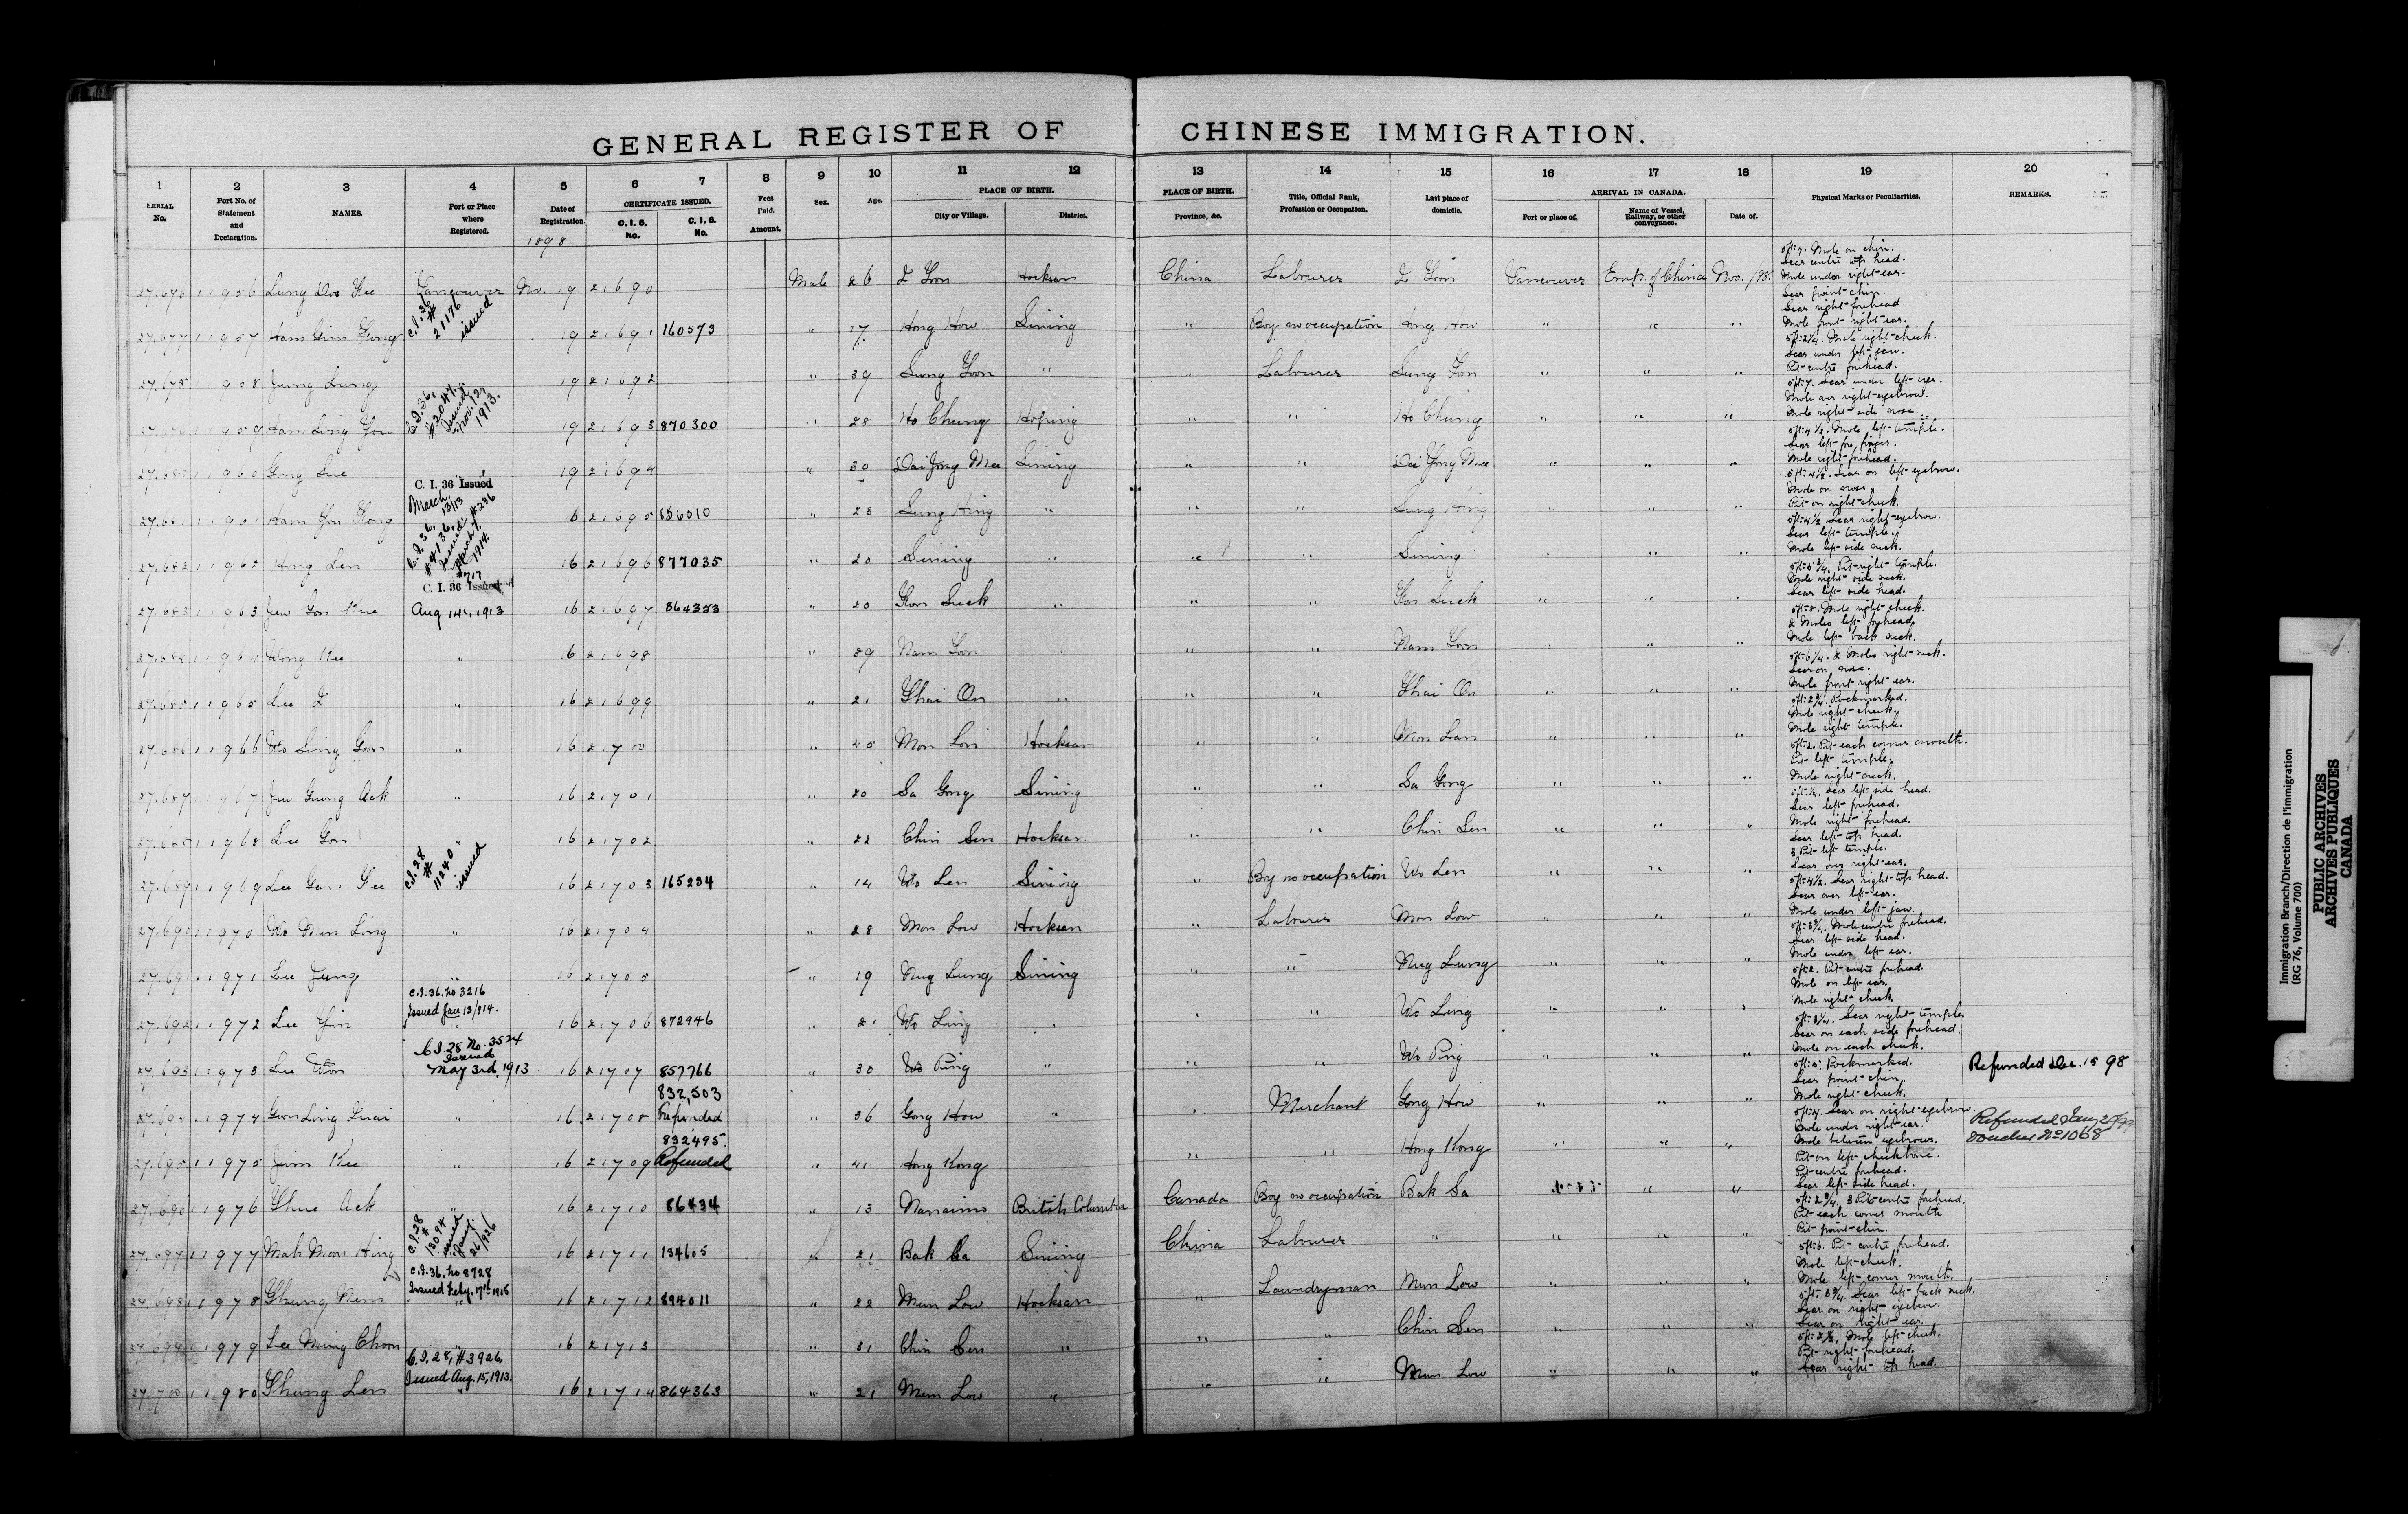 GENERAL REGISTER OF CHINESE IMMIGRATION.
1 2 3 4 5 6 7 8 9 10 11 12 13 14 15 16 17 18 19 20
SERIAL No. Port No. of Statement and Declaration. NAMES. Port or Place where Registered. Date of Registration. CERTIFICATE ISSUED. C. I. 5. No. C. I. 6. No. Fees Paid. Amount. Sex. Age. PLACE OF BIRTH. City or Village. District. PLACE OF BIRTH. Province, &c. Title, Official Rank, Profession or Occupation. Last place of domicile. ARRIVAL IN CANADA. Port or place of. Name of Vessel, Railway, or other conveyance. Date of. Physical Marks or Peculiarities. REMARKS.
1898
27.676 11956 Vancouver Nov. 19 21690 Male 26 Hocksan China Labourer Vancouver Emp. of China Nov. /98.
27.677 11957 Ham Gim C.I. 36 # 21176 issued 19 21691 160573 " 17 Hong How Sining " Boy no occupation Hong How " " "
27.678 11958 Jung Lung 19 21692 " 39 Lung Goon " " Labourer Lung Goon " " "
27.679 11959 Ham Ling C.I. 36, #2047, Issued Nov. 12, 1913. 19 21693 870300 " 28 Ho Chung Hoping " " Ho Chung " " "
27.680 11960 Gong Sue 19 21694 " 30 Dai Jong Mee Sining " " Dai Jong Mee " " "
27.681 11961 Ham C. I. 36 Issued March 13/13 #236 16 21695 856010 " 28 Lung Hing " " " Lung Hing " " "
27.682 11962 Hong Len C.I. 36, #4136, Issued March 7, 1914. 16 21696 877035 " 20 Sining " " " Sining " " "
27.683 11963 Jew Gon C. I. 36 Issued #717 Aug 14, 1913 16 21697 864353 " 20 Suck " " " Suck " " "
27.684 11964 Wong Kee " 16 21698 " 39 Nam Goon " " " Nam Goon " " "
27.685 11965 Lee " 16 21699 " 21 Ghai On " " " Ghai On " " "
27.686 11966 Wo Ling Goon " 16 21700 " 40 Mon Hocksan " " Mon " " "
27.687 11967 Jew Gwong Ack " 16 21701 " 20 Sa Gong Sining " " Sa Gong " " "
27.688 11968 Lee Gon " 16 21702 " 22 Chin Sen Hocksan " " Chin Sen " " "
27.689 11969 Lee C.I. 28 # 11240 issued 16 21703 165234 " 14 Wo Len Sining " Boy no occupation Wo Len " " "
27.690 11970 Wo Men Ling " 16 21704 " 28 Mon Low Hocksan " Labourer Mon Low " " "
27.691 11971 Lee Jung " 16 21705 " 19 Mug Lung Sining " " Mug Lung " " "
27.692 11972 Lee Yin C.I. 36. No 3216 Issued Jan 13/914. 16 21706 872946 " 21 Wo Ling " " " Wo Ling " " "
27.693 11973 Lee Won C.I. 28 No. 3524 Issued May 3rd, 1913 16 21707 857766 " 30 Wo Ping " " " Wo Ping " " " Refunded Dec. 15 98
27.694 11974 Goon Ling Suai " 16 21708 832,503 Refunded " 36 Gong How " " Merchant Gong How " " " Refunded Jany 20/99 Voucher No 1068
27.695 11975 Jim Kee " 16 21709 832495. Refunded " 41 Hong Kong " " Hong Kong " " "
27.696 11976 Ghue Ack " 16 21710 86434 " 13 Nanaimo British Columbia Canada Boy no occupation Bak Sa " " "
27.697 11977 Mah Mon Hing C.I. 28 # 13094 issued Jany. 26/926 16 21711 134605 " 21 Bak Sa Sining China Labourer " " " "
27.698 11978 Ghung Nem C.I. 36. No 8728 Issued Feby. 17th 1915 16 21712 894011 " 22 Mun Low Hocksan " Laundryman Mun Low " " "
27.699 11979 Lee Ming Choon " 16 21713 " 31 Chin Sen " " " Chin Sen " " "
27.700 11980 Ghung Len C.I. 28, #3926, Issued Aug. 15, 1913. " 16 21714 864363 " 21 Mun Low " " " Mun Low " " "
Mole on chin.
Scar centre top head.
Mole under right ear.
Scar point chin.
Scar right forehead.
Mole front right ear.
Mole right cheek.
Scar under left jaw.
Pit centre forehead.
Scar under left eye.
Mole over right eyebrow.
Mole right side nose.
Mole left temple.
Scar left fore finger.
Mole right forehead.
Scar on left eyebrow.
Mole on nose.
Pit on right cheek.
Scar right eyebrow.
Scar left temple.
Mole left side neck.
Pit right temple.
Mole right side neck.
Scar left side head.
Mole right cheek.
2 Moles left forehead.
Mole left back neck.
2 Moles right neck.
Scar on nose.
Mole front right ear.
Pockmarked.
Mole right cheek.
Mole right temple.
Pit each corner mouth.
Pit left temple.
Mole right neck.
Scar left side head.
Scar left forehead.
Mole right forehead.
Scar left top head.
3 Pits left temple.
Scar over right ear.
Scar right top head.
Scar over left ear.
Mole under left jaw.
Mole centre forehead.
Scar left side head.
Mole under left ear.
Pit centre forehead.
Mole on left ear.
Mole right cheek.
Scar right temple.
Scar on each side forehead.
Mole on each cheek.
Pockmarked.
Scar point chin.
Mole right cheek.
Scar on right eyebrow.
Mole under right ear.
Mole between eyebrows.
Pit on left cheekbone.
Pit centre forehead.
Scar left side head.
3 Pits centre forehead.
Pit each corner mouth
Pit point chin.
Pit centre forehead.
Mole left cheek.
Mole left corner mouth.
Scar left back neck.
Scar on right eyebrow.
Scar on right ear.
Mole left cheek.
Pit right forehead.
Scar right top head.
Immigration Branch/Direction de l'immigration
(RG 76, Volume 700)
PUBLIC ARCHIVES
ARCHIVES PUBLIQUES
CANADA